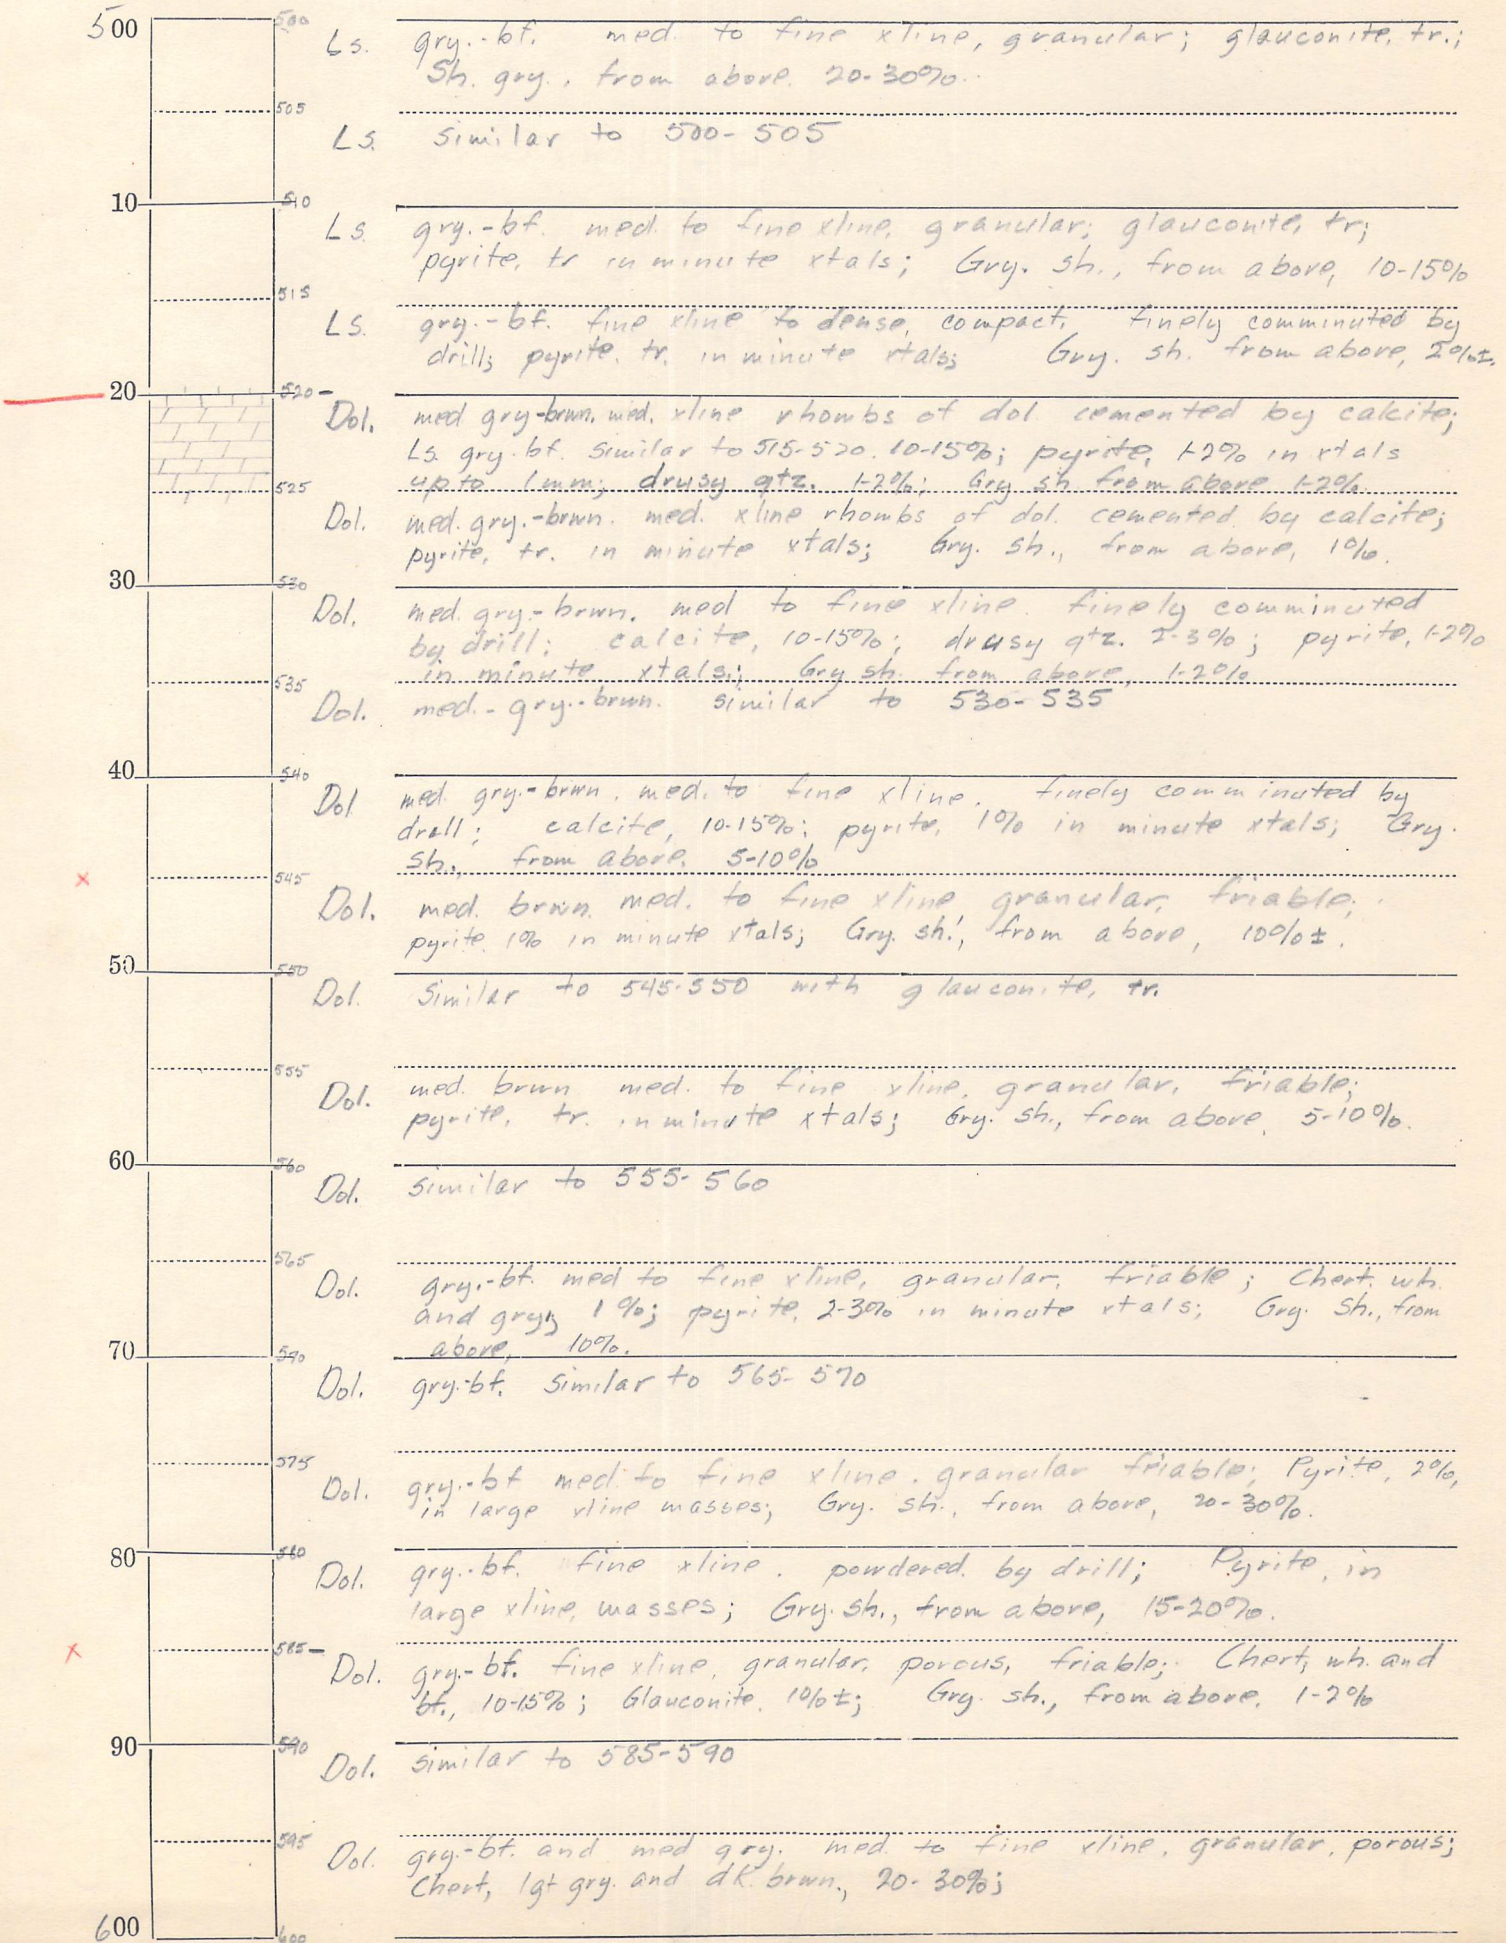 500
500
Ls. gry.-bf. med. to fine xline, granular; glauconite, tr.;
Sh. gry., from above. 20-30%.
505
Ls. Similar to 500-505
10
510
Ls. gry.-bf. med. to fine xline, granular; glauconite, tr;
pyrite, tr in minute xtals; Gry. sh., from above, 10-15%
515
Ls. gry.-bf. fine xline to dense, compact, finely comminuted by
drill; pyrite, tr. in minute xtals; Gry. sh. from above, 2%±.
20
520
Dol. med gry-brwn. med. xline rhombs of dol. cemented by calcite;
Ls. gry-bf. similar to 515-520. 10-15%; pyrite, 1-2% in xtals
up to 1mm; drusy qtz. 1-2%; Gry sh from above 1-2%.
525
Dol. med. gry.-brwn. med. xline rhombs of dol. cemented by calcite;
pyrite, tr. in minute xtals; Gry. sh., from above, 1%.
30
530
Dol. med. gry-brwn. med to fine xline. finely comminuted
by drill; calcite, 10-15%; drusy qtz. 2-3%; pyrite, 1-2%
in minute xtals.; Gry sh. from above, 1-2%
535
Dol. med.-gry.-brwn. similar to 530-535
40
540
Dol med. gry.-brwn. med. to fine xline. finely comminuted by
drill; calcite, 10-15%; pyrite, 1% in minute xtals; Gry.
sh., from above, 5-10%
x
545
Dol. med. brwn. med. to fine xline granular, friable;
pyrite, 1% in minute xtals; Gry. sh., from above, 10%±.
50
550
Dol. Similar to 545-550 with glauconite, tr.
555
Dol. med. brwn med. to fine xline, granular, friable;
pyrite, tr. in minute xtals; Gry. sh., from above, 5-10%.
60
560
Dol. similar to 555-560
565
Dol. gry.-bf. med to fine xline, granular, friable; Chert, wh.
and gry, 1%; pyrite, 2-3% in minute xtals; Gry. sh., from
above, 10%.
70
570
Dol. gry.-bf. Similar to 565-570
575
Dol. gry.-bf med. to fine xline. granular friable; Pyrite, 2%,
in large xline masses; Gry. sh., from above, 20-30%.
80
580
Dol. gry.-bf. fine xline. powdered by drill; Pyrite, in
large xline, masses; Gry. sh., from above, 15-20%.
x
585
Dol. gry.-bf. fine xline, granular, porous, friable; Chert, wh. and
bf., 10-15%; Glauconite, 1%±; Gry. sh., from above, 1-2%
90
590
Dol. similar to 585-590
595
Dol. gry.-bf. and med gry. med to fine xline, granular, porous;
Chert, lgt gry. and dk. brwn., 20-30%;
600
600